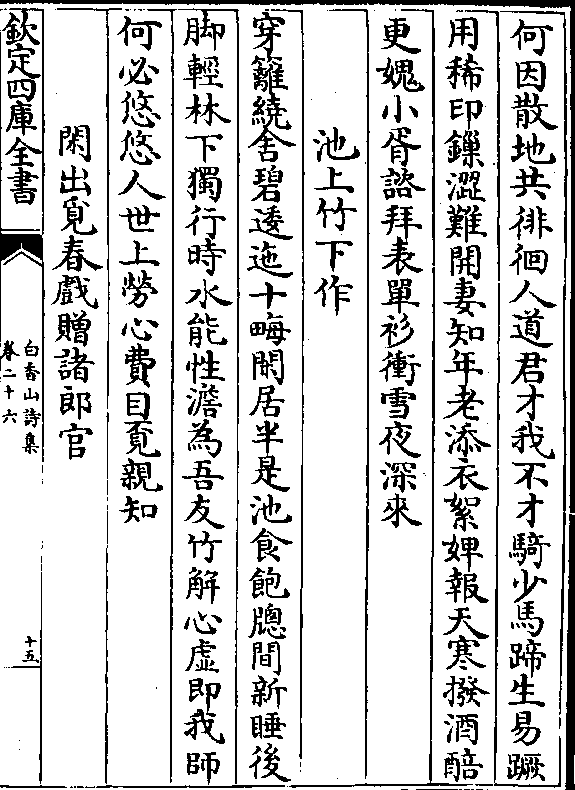 何因散地共徘徊人道君才我不才騎少馬蹄生易蹶
用稀印鏁澀難開妻知年老添衣絮婢報天寒撥酒醅
更媿小胥諮拜表單衫衝雪夜深來
池上竹下作
穿籬繞舍碧逶迤十畮閑居半是池食飽牎間新睡後
脚輕林下獨行時水能性澹為吾友竹解心虛即我師
何必悠悠人世上勞心費目覓親知
閑出覓春戲贈諸郎官
欽定四庫全書
白香山詩集
卷二十六
十五